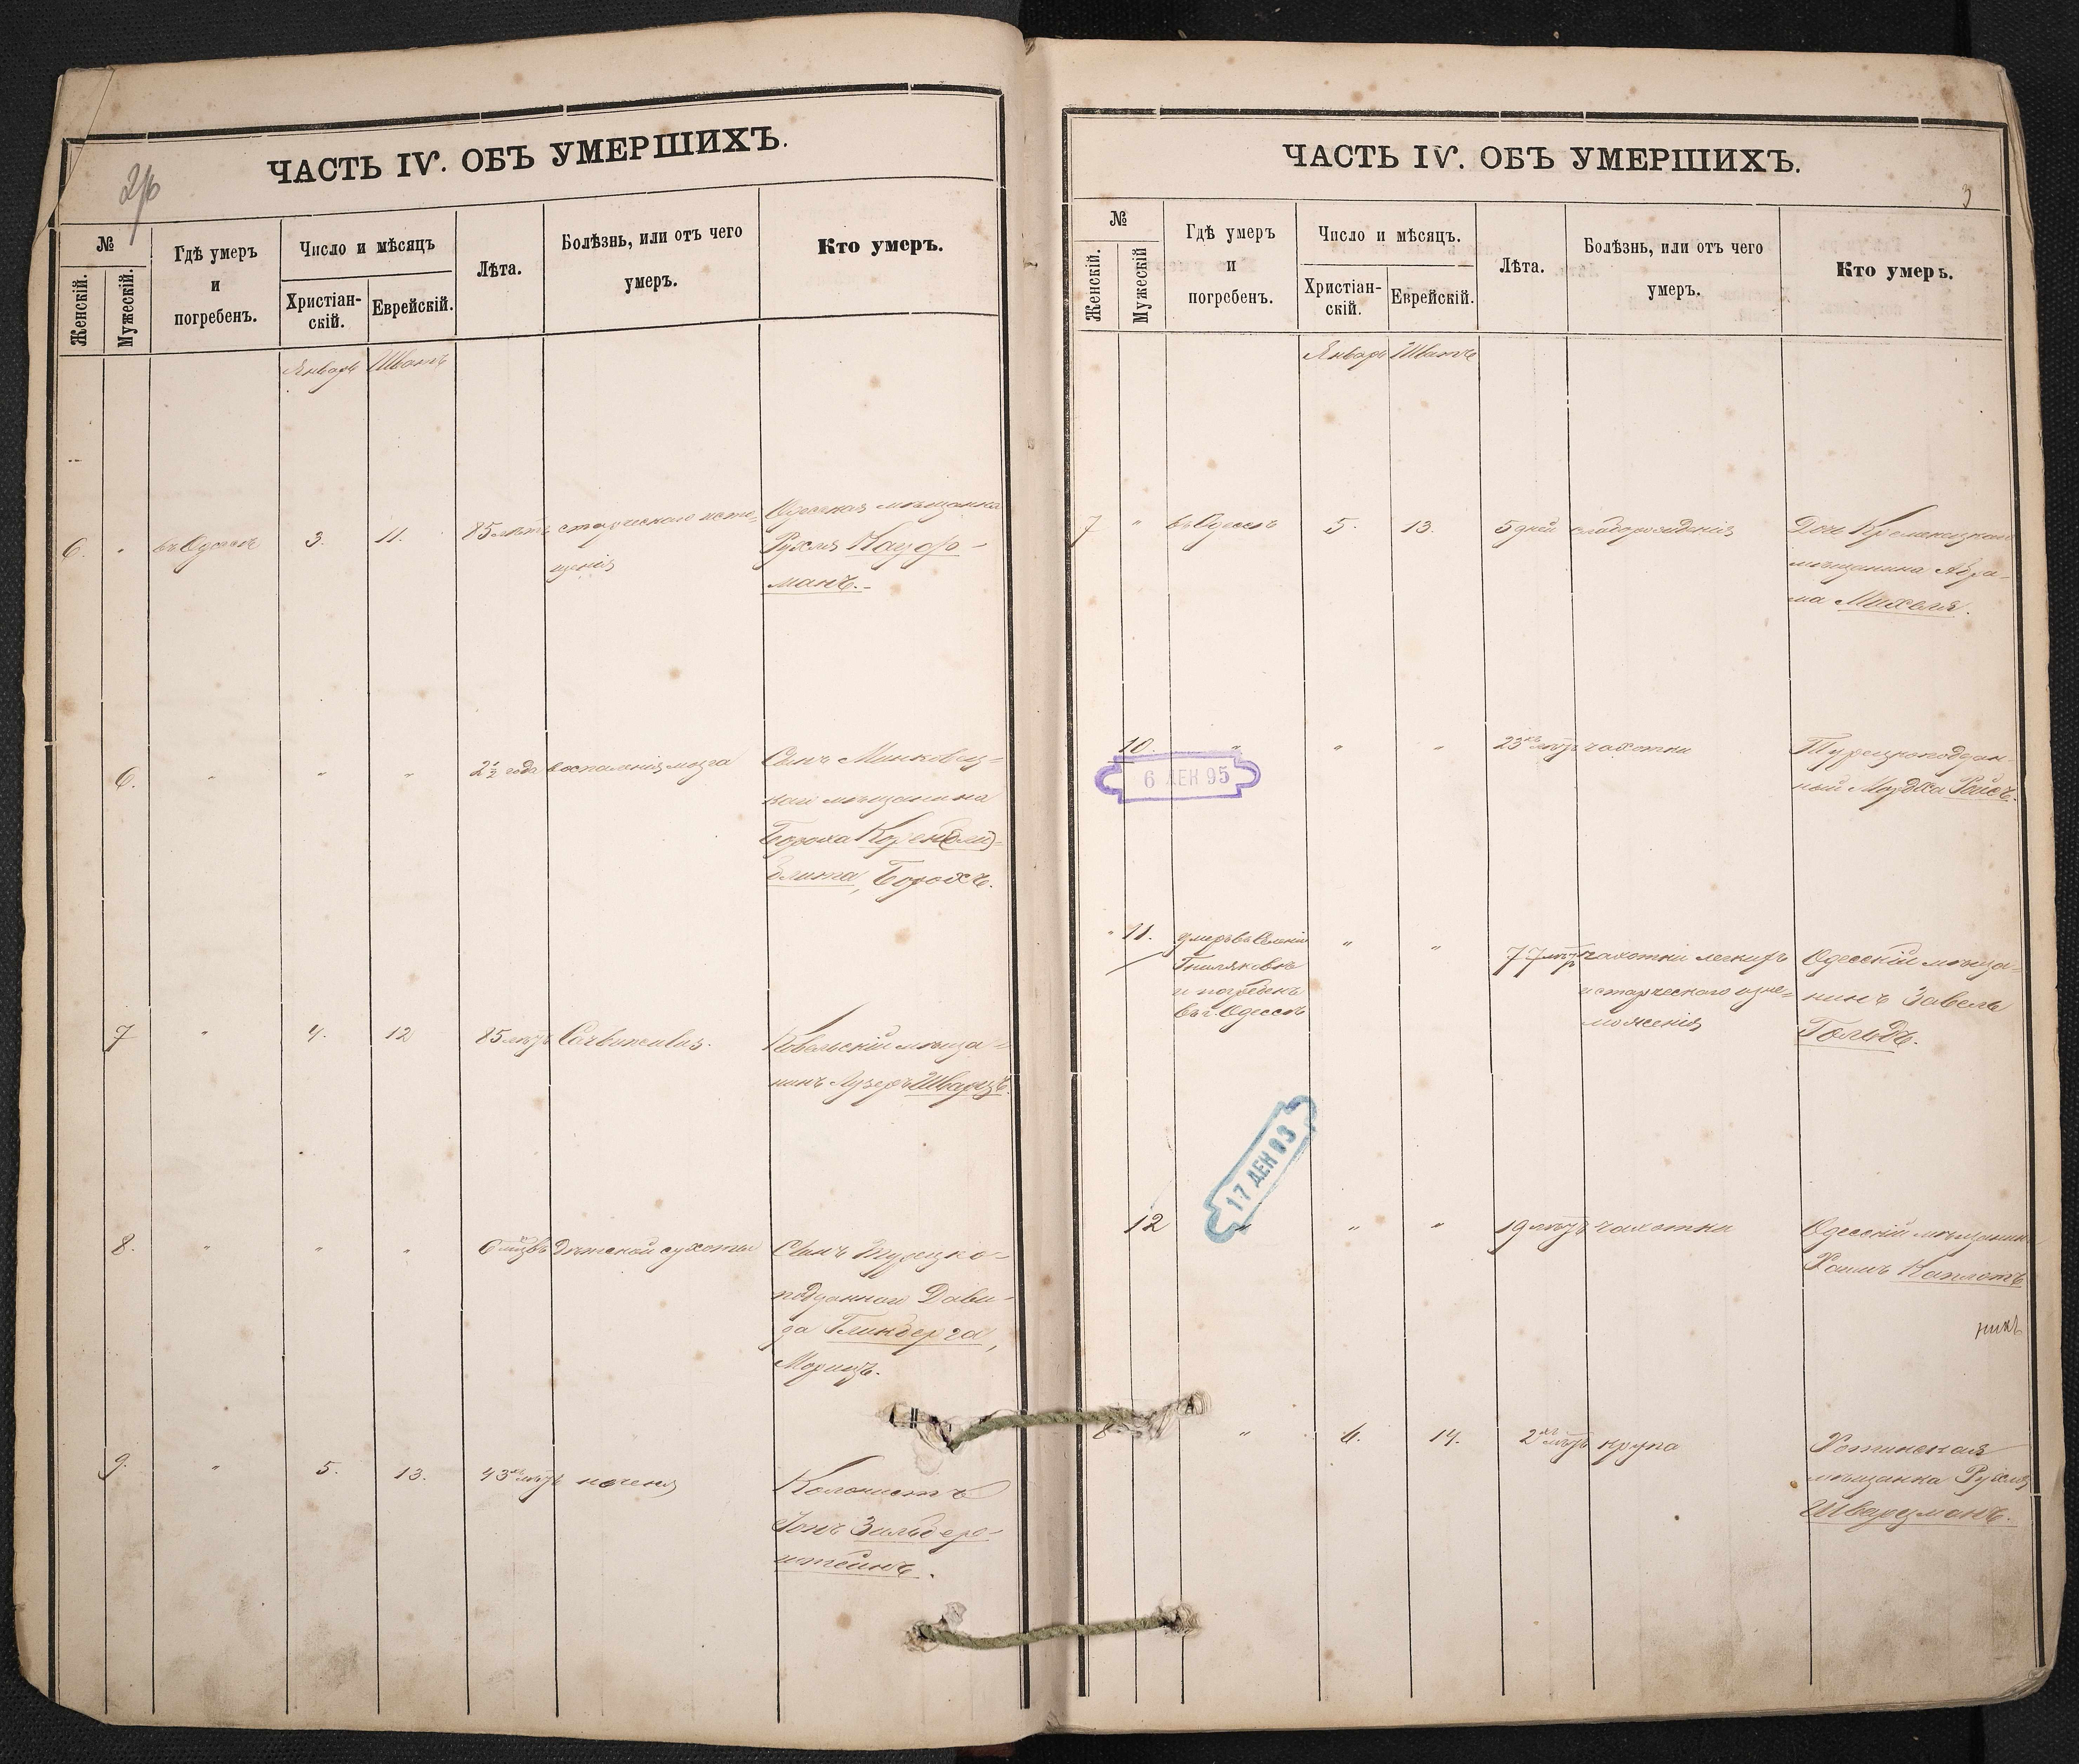 ЧАСТЬ IV. ОБЪ УМЕРШИХЪ.
2/б
№
Женскій.
Мужескій.
Гдѣ умеръ
и
погребенъ.
Число и мѣсяцъ
Христіан-
скій.
Еврейскій.
Лѣта.
Болѣзнь, или отъ чего
умеръ.
Кто умеръ.
Январь Шватъ
6. " въ Одессѣ 3. 11. 85 лѣтъ старческаго исто-
щенія
Одесская мѣщанка
Рухля Кауф-
манъ.
6. " " " 2½ года воспаленія мозга
Сынъ Минковец-
каго мѣщанина
Бороха
Борохъ.
7 " 4. 12 85 лѣтъ Carbunculus.
Ковельскій мѣща-
нинъ Лузеръ Шварцъ.
8. " " " 6 мѣс Дѣтской сухотки
Сынъ Турецко-
подданнаго Дави-
да Глинберга,
Морицъ.
9. " 5. 13. 43 лѣтъ
Колонистъ
Зильбер-
штейнъ.
ЧАСТЬ IV. ОБЪ УМЕРШИХЪ.
3
№
Женскій.
Мужескій
Гдѣ умеръ
и
погребенъ.
Число и мѣсяцъ.
Христіан-
скій.
Еврейскій.
Лѣта.
Болѣзнь, или отъ чего
умеръ.
Кто умеръ.
Январь Шватъ
7 " въ Одессѣ 5. 13. 5 дней слаборожденія
Дочь Кременецкаго
мѣщанина Абра-
ма Михеля.
10. " " " 23 лѣтъ чахотки
Турецкоподдан-
ный Мордка
6 ДЕК 95
11. умеръ въ селеніи
Гниляковѣ
и погребенъ
въ г. Одессѣ
" " 77 лѣтъ чахотки легкихъ
и старческаго изне-
моженія
Одесскій мѣща-
нинъ Завель
Гольдъ.
17 ДЕК 93
12 " " " 19 лѣтъ чахотки
Одесскій мѣщанинъ
Хаимъ Каплот
никъ
8 " 6. 14. 2 лѣтъ крупа
Хотинская
мѣщанка Рухля
Шварцманъ.